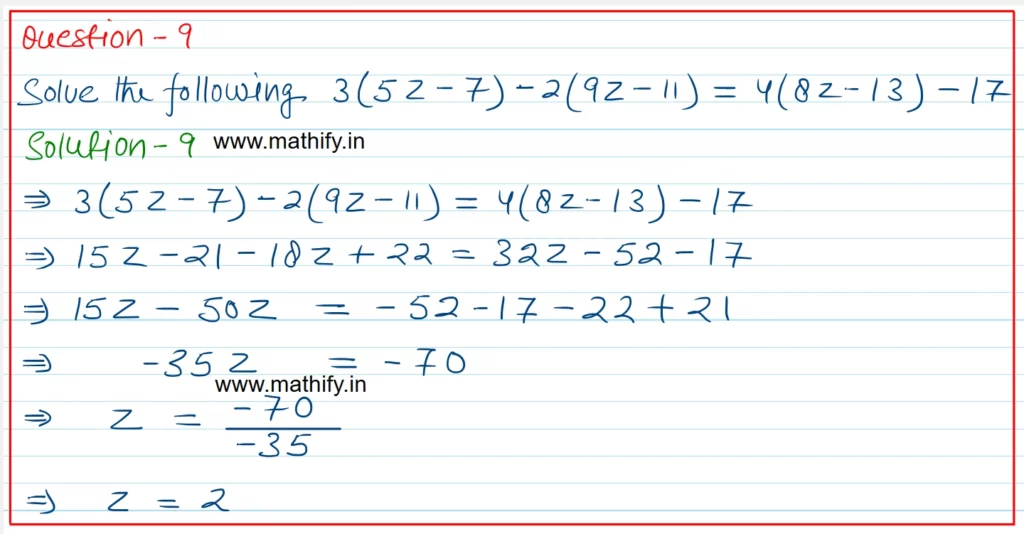 Question - 9
Solve the following 3(5z - 7) - 2(9z - 11) = 4(8z - 13) - 17
Solution - 9 www.mathify.in
⇒ 3(5z - 7) - 2(9z - 11) = 4(8z - 13) - 17
⇒ 15z - 21 - 18z + 22 = 32z - 52 - 17
⇒ 15z - 50z = - 52 - 17 - 22 + 21
⇒ -35z = - 70
www.mathify.in
⇒ z = -70/-35
⇒ z = 2